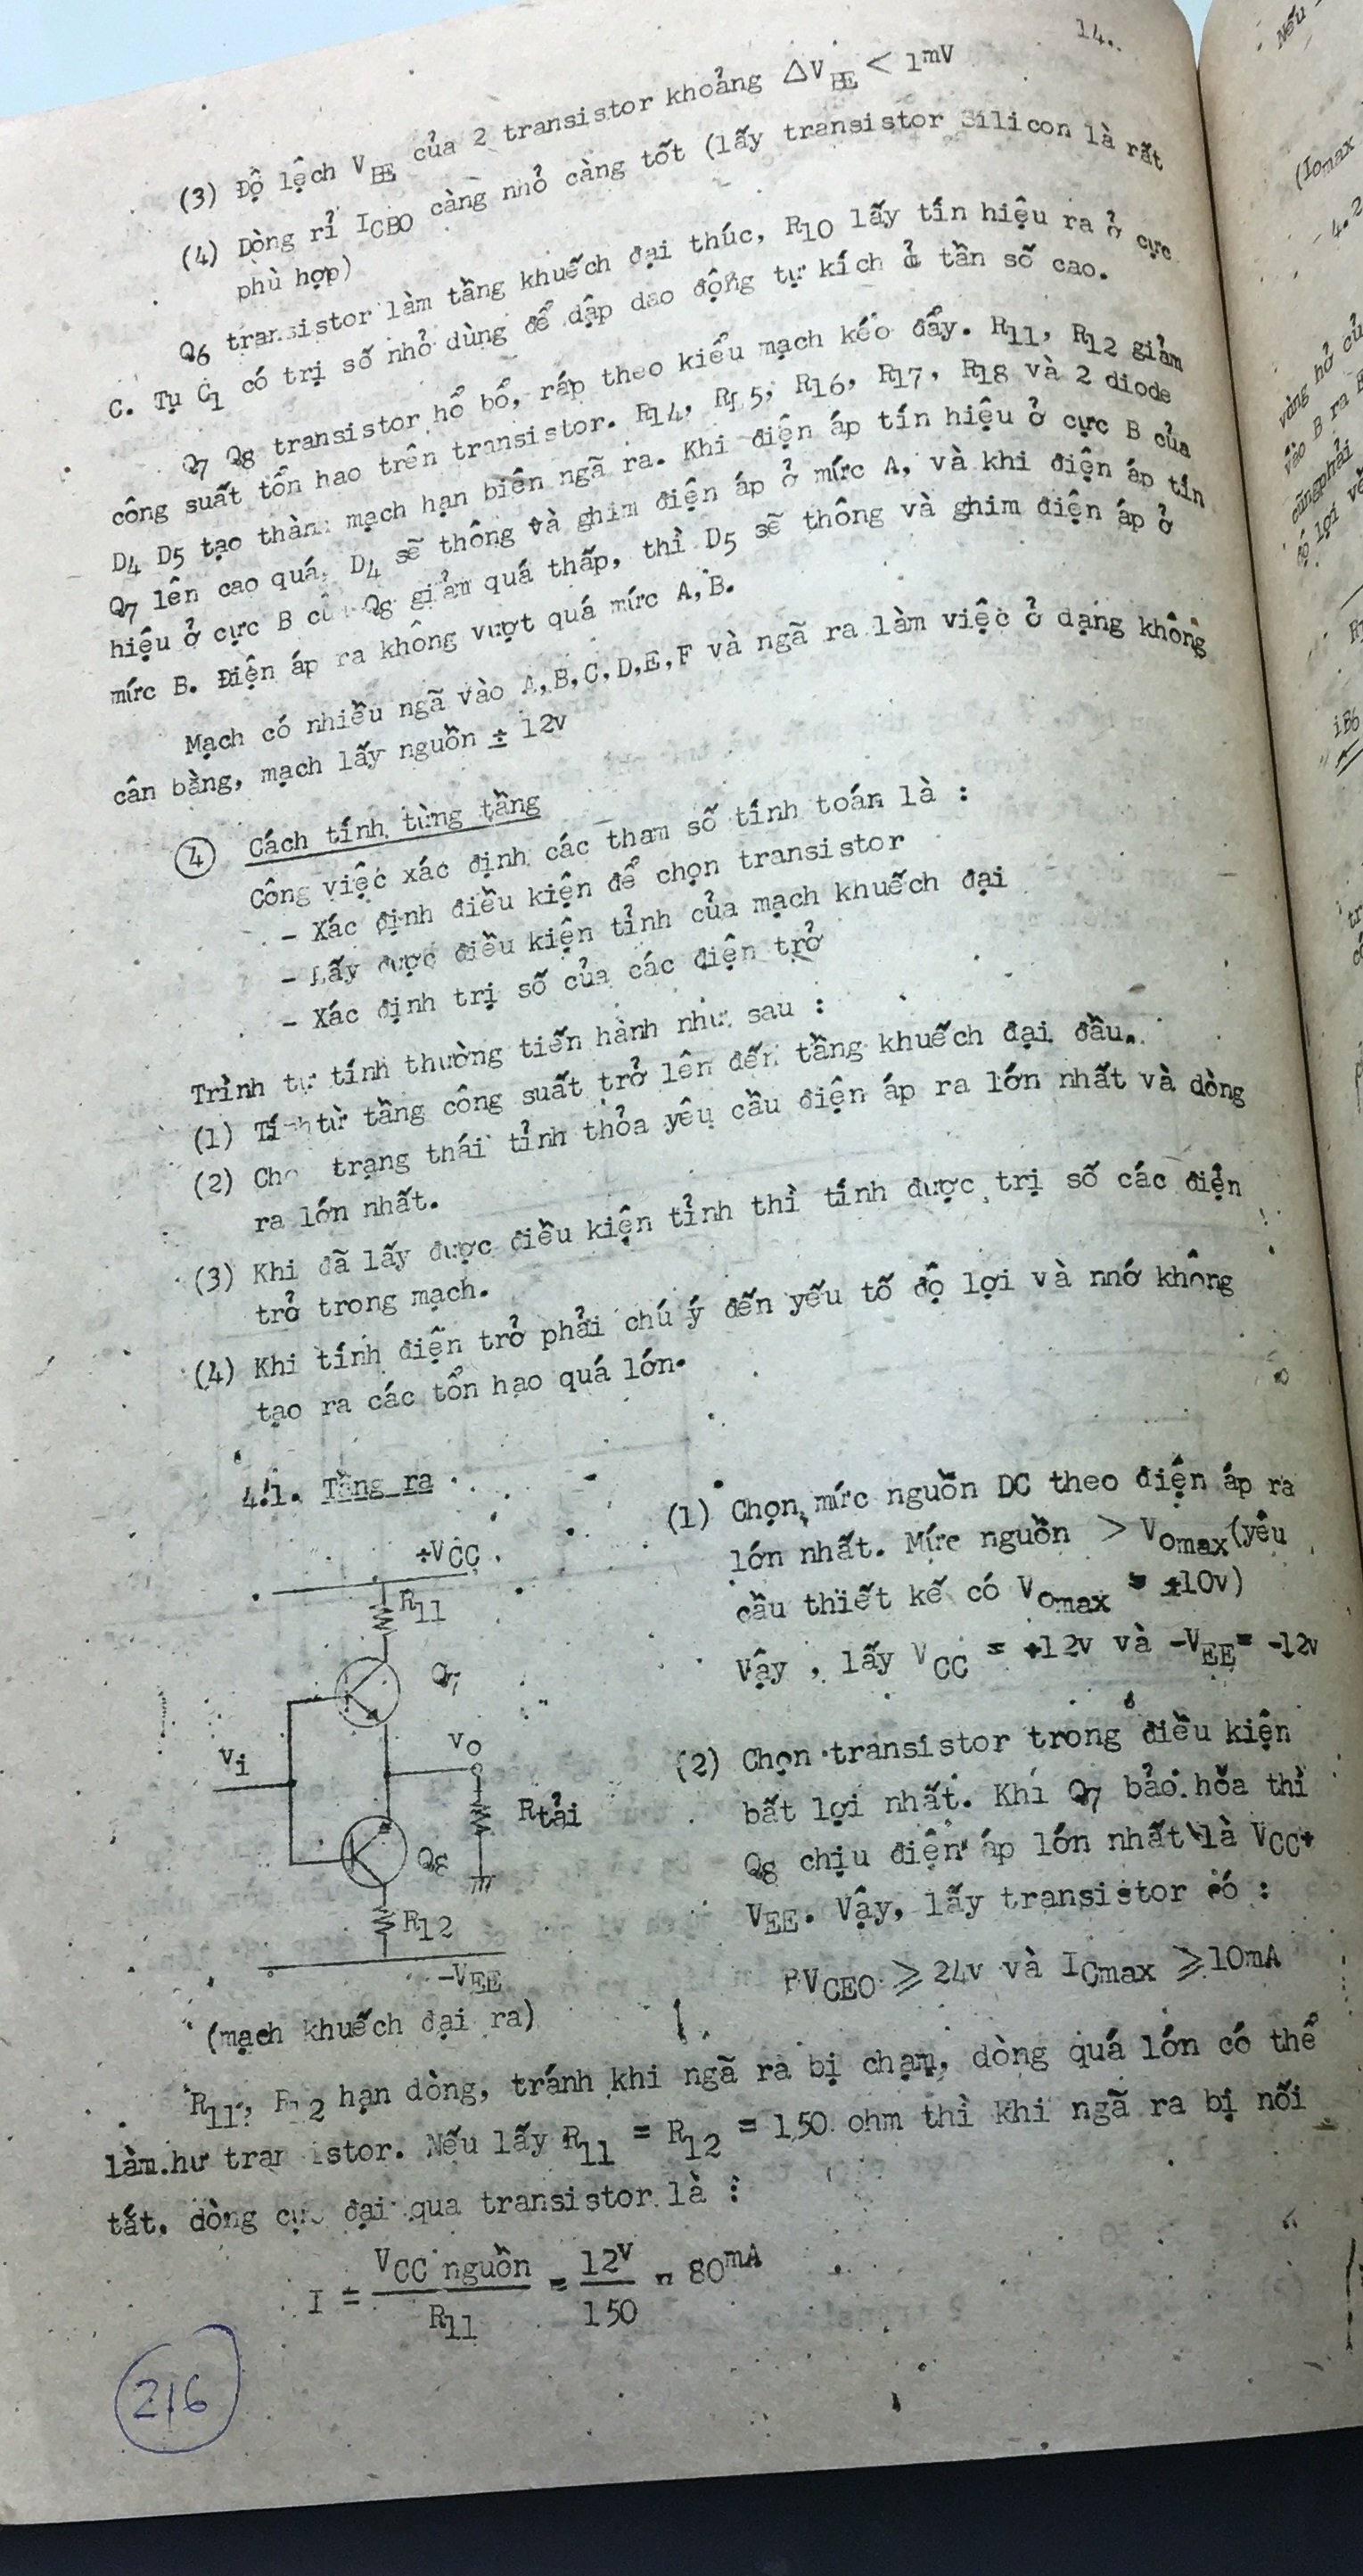 14..
(3) Độ lệch VBE của 2 transistor khoảng △VBE < 1mV
(4) Dòng rỉ ICBO càng nhỏ càng tốt (lấy transistor Silicon là rất
phù hợp)
Q6 transistor làm tầng khuếch đại thúc, R10 lấy tín hiệu ra ở cực
C. Tụ C1 có trị số nhỏ dùng để dập dao động tự kích ở tần số cao.
Q7 Q8 transistor hổ bổ, ráp theo kiểu mạch kéo đẩy. R11, R12 giảm
công suất tổn hao trên transistor. R14, R15, R16, R17, R18 và 2 diode
D4 D5 tạo thành mạch hạn biên ngã ra. Khi điện áp tín hiệu ở cực B của
Q7 lên cao quá, D4 sẽ thông và ghim điện áp ở mức A, và khi điện áp tín
hiệu ở cực B của Q8 giảm quá thấp, thì D5 sẽ thông và ghim điện áp ở
mức B. Điện áp ra không vượt quá mức A,B.
Mạch có nhiều ngã vào A,B,C,D,E,F và ngã ra làm việc ở dạng không
cân bằng, mạch lấy nguồn ± 12v
4 Cách tính từng tầng
Công việc xác định các tham số tính toán là :
- Xác định điều kiện để chọn transistor
- Lấy được điều kiện tỉnh của mạch khuếch đại
- Xác định trị số của các điện trở
Trình tự tính thường tiến hành như sau :
(1) Tính từ tầng công suất trở lên đến tầng khuếch đại đầu.
(2) Cho trạng thái tỉnh thỏa yêu cầu điện áp ra lớn nhất và dòng
ra lớn nhất.
(3) Khi đã lấy được điều kiện tỉnh thì tính được trị số các điện
trở trong mạch.
(4) Khi tính điện trở phải chú ý đến yếu tố độ lợi và nhớ không
tạo ra các tổn hao quá lớn.
4.1. Tầng ra
+VCC
R11
Q7
vi
vo
Rtải
Q8
R12
-VEE
(mạch khuếch đại ra)
(1) Chọn mức nguồn DC theo điện áp ra
lớn nhất. Mức nguồn > Vomax(yêu
cầu thiết kế có Vomax = ±10v)
Vậy , lấy VCC = +12v và -VEE= -12v
(2) Chọn transistor trong điều kiện
bất lợi nhất. Khi Q7 bảo hòa thì
Q8 chịu điện áp lớn nhất là VCC+
VEE. Vậy, lấy transistor có :
BVCEO ⩾ 24v và ICmax ⩾ 10mA
R11, R12 hạn dòng, tránh khi ngã ra bị chạm, dòng quá lớn có thể
làm hư transistor. Nếu lấy R11 = R12 = 150 ohm thì khi ngã ra bị nối
tắt. dòng cực đại qua transistor là :
I = VCC nguồn / R11 = 12v / 150 = 80mA
216
Nếu
(Iomax
- 4.2
vòng hở củ
vào B ra
cũng phải
iB6